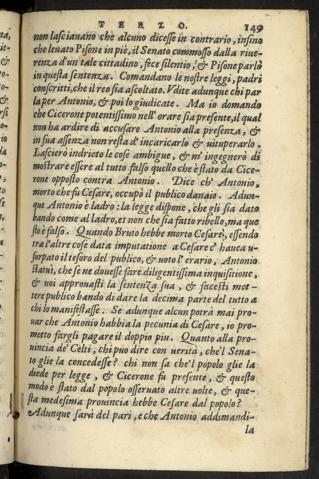 TERZO. 149
non lasciauano chè alcuno dicesse in contrario, insino
che leuato Pisone in piè, il Senato commosso dalla riue-
renza d'un tale cittadino, fece silentio, & Pisone parlò
in questa sentenza. Comandano le nostre leggi, padri
conscritti, che il reo sia ascoltato. Vdite adunque chi par
la per Antonio, & poi lo giudicate. Ma io domando
che Cicerone potentissimo nell'orare sia presente, il qual
non ha ardire di accusare Antonio alla presenza, &
in sua assenza non resta d'incaricarlo & uituperarlo.
Lascierò indrieto le cose ambigue, & m'ingegnerò di
mostrare essere al tutto falso quello che è stato da Cice-
rone opposto contra Antonio. Dice ch'Antonio,
morto che fu Cesare, occupò il publico danaio. Adun-
que Antonio è ladro: la legge dispone, che gli sia dato
bando come al ladro, et non che sia fatto ribello, ma que
sto è falso. Quando Bruto hebbe morto Cesare, essendo
tra l'altre cose data imputatione a Cesare c'haueua u-
surpato il tesoro del publico, & uoto l'erario, Antonio
statuì, che se ne douesse fare diligentissima inquisitione,
& uoi approuasti la sentenza sua, & facesti met-
tere publico bando di dare la decima parte del tutto a
chi lo manifestasse. Se adunque alcun potrà mai pro-
uar che Antonio habbia la pecunia di Cesare, io pro-
metto fargli pagare il doppio piu. Quanto alla pro-
uincia de' Celti, chi può dire con uerità, che'l Sena-
to glie la concedesse? chi non sa che'l popolo glie la
diede per legge, & Cicerone fu presente, & questo
modo è stato dal popolo osseruato altre uolte, & que-
sta medesima prouincia hebbe Cesare dal popolo?
Adunque sarà del pari, e che Antonio addomandi-
la